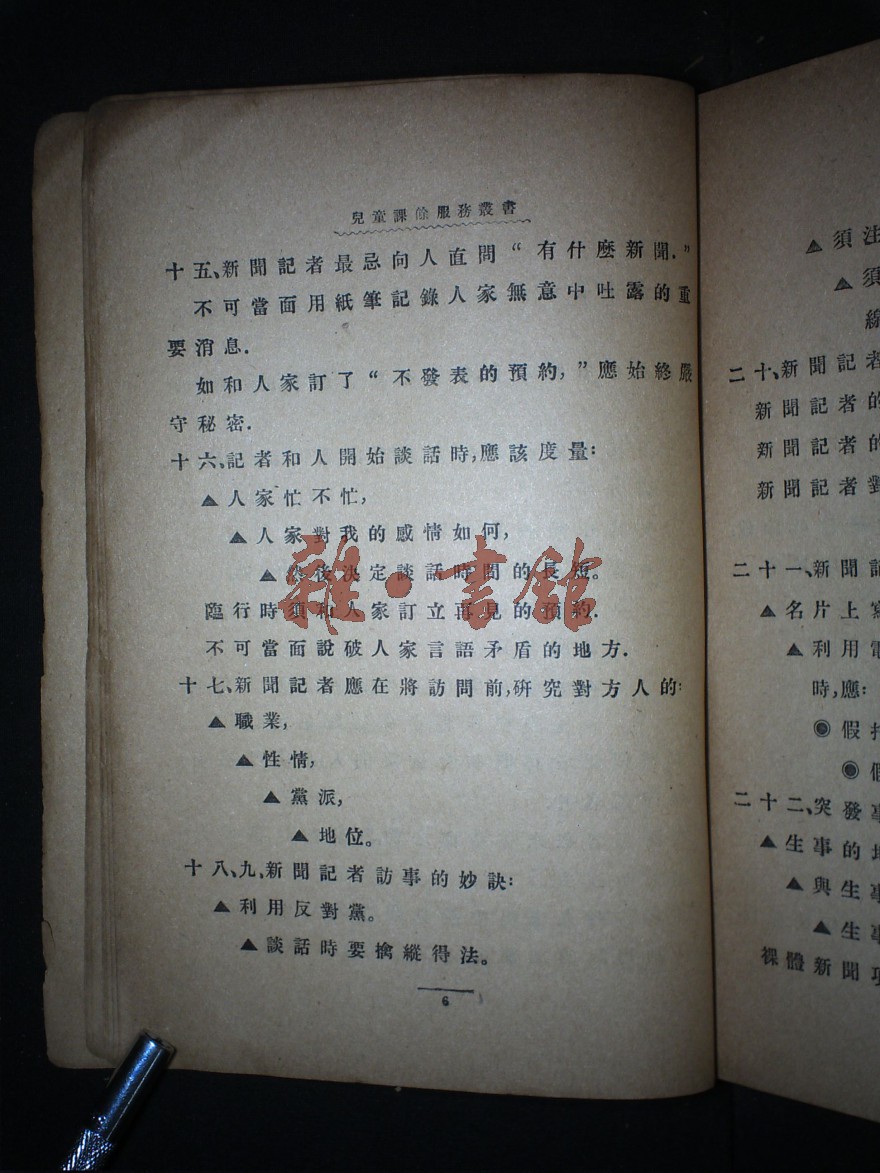 兒童課餘服務叢書
十五、新聞記者最忌向人直問“有什麽新聞.”
不可當面用紙筆記錄人家無意中吐露的重
要消息.
如和人家訂了“不發表的預約,”應始終嚴
守秘密.
十六、記者和人開始談話時,應該度量:
▲人家忙不忙,
▲人家對我的感情如何,
▲然後決定談話時間的長短。
臨行時須和人家訂立再見的預約.
不可當面說破人家言語矛盾的地方.
十七、新聞記者應在將訪問前,研究對方人的:
▲職業,
▲性情,
▲黨派,
▲地位。
十八、九、新聞記者訪事的妙訣:
▲利用反對黨。
▲談話時要擒縱得法。
6
雜·書館
▲須注
▲須
線
二十、新聞記者
新聞記者的
新聞記者的
新聞記者對
二十一、新聞記
▲名片上寫
▲利用電
時,應:
◉假
◉假
二十二、突發事
▲生事的地
▲與生事
▲生事
裸體新聞項